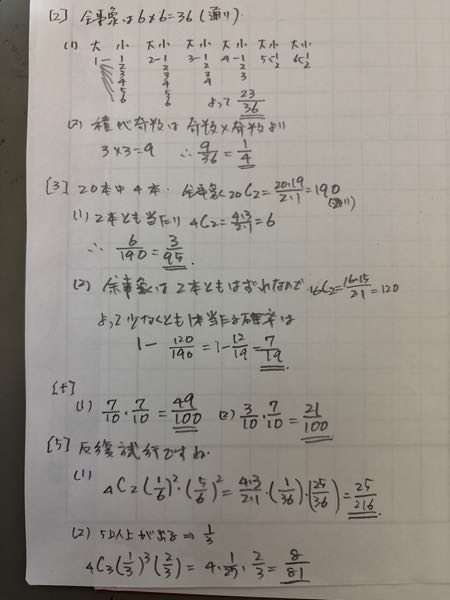 [2] 全事象は6×6=36(通り)
(1) 大 小 大 小 大 小 大 小 大 小 大 小
1-1 2-1 3-1 4-1 5-1 6-1
2 2 2 2 2 2
3 3 3 3
4 4 4
5 5
6 6 よって 23/36
(2) 積が奇数は 奇数×奇数より
3×3=9 ∴ 9/36=1/4
[3] 20本中4本. 全事象 20C2=20·19/2·1=190(通り)
(1) 2本とも当たり 4C2=4·3/2·1=6
∴ 6/190=3/95
(2) 余事象は2本ともはずれなので 16C2=16·15/2·1=120
よって少なくとも1本当たる確率は
1-120/190=1-12/19=7/19
[4]
(1) 7/10·7/10=49/100 (2) 3/10·7/10=21/100
[5] 反復試行ですね.
(1)
4C2(1/6)²·(5/6)²=4·3/2·1·(1/36)·(25/36)=25/216
(2) 5以上が出る⇒1/3
4C3(1/3)³(2/3)=4·1/27·2/3=8/81